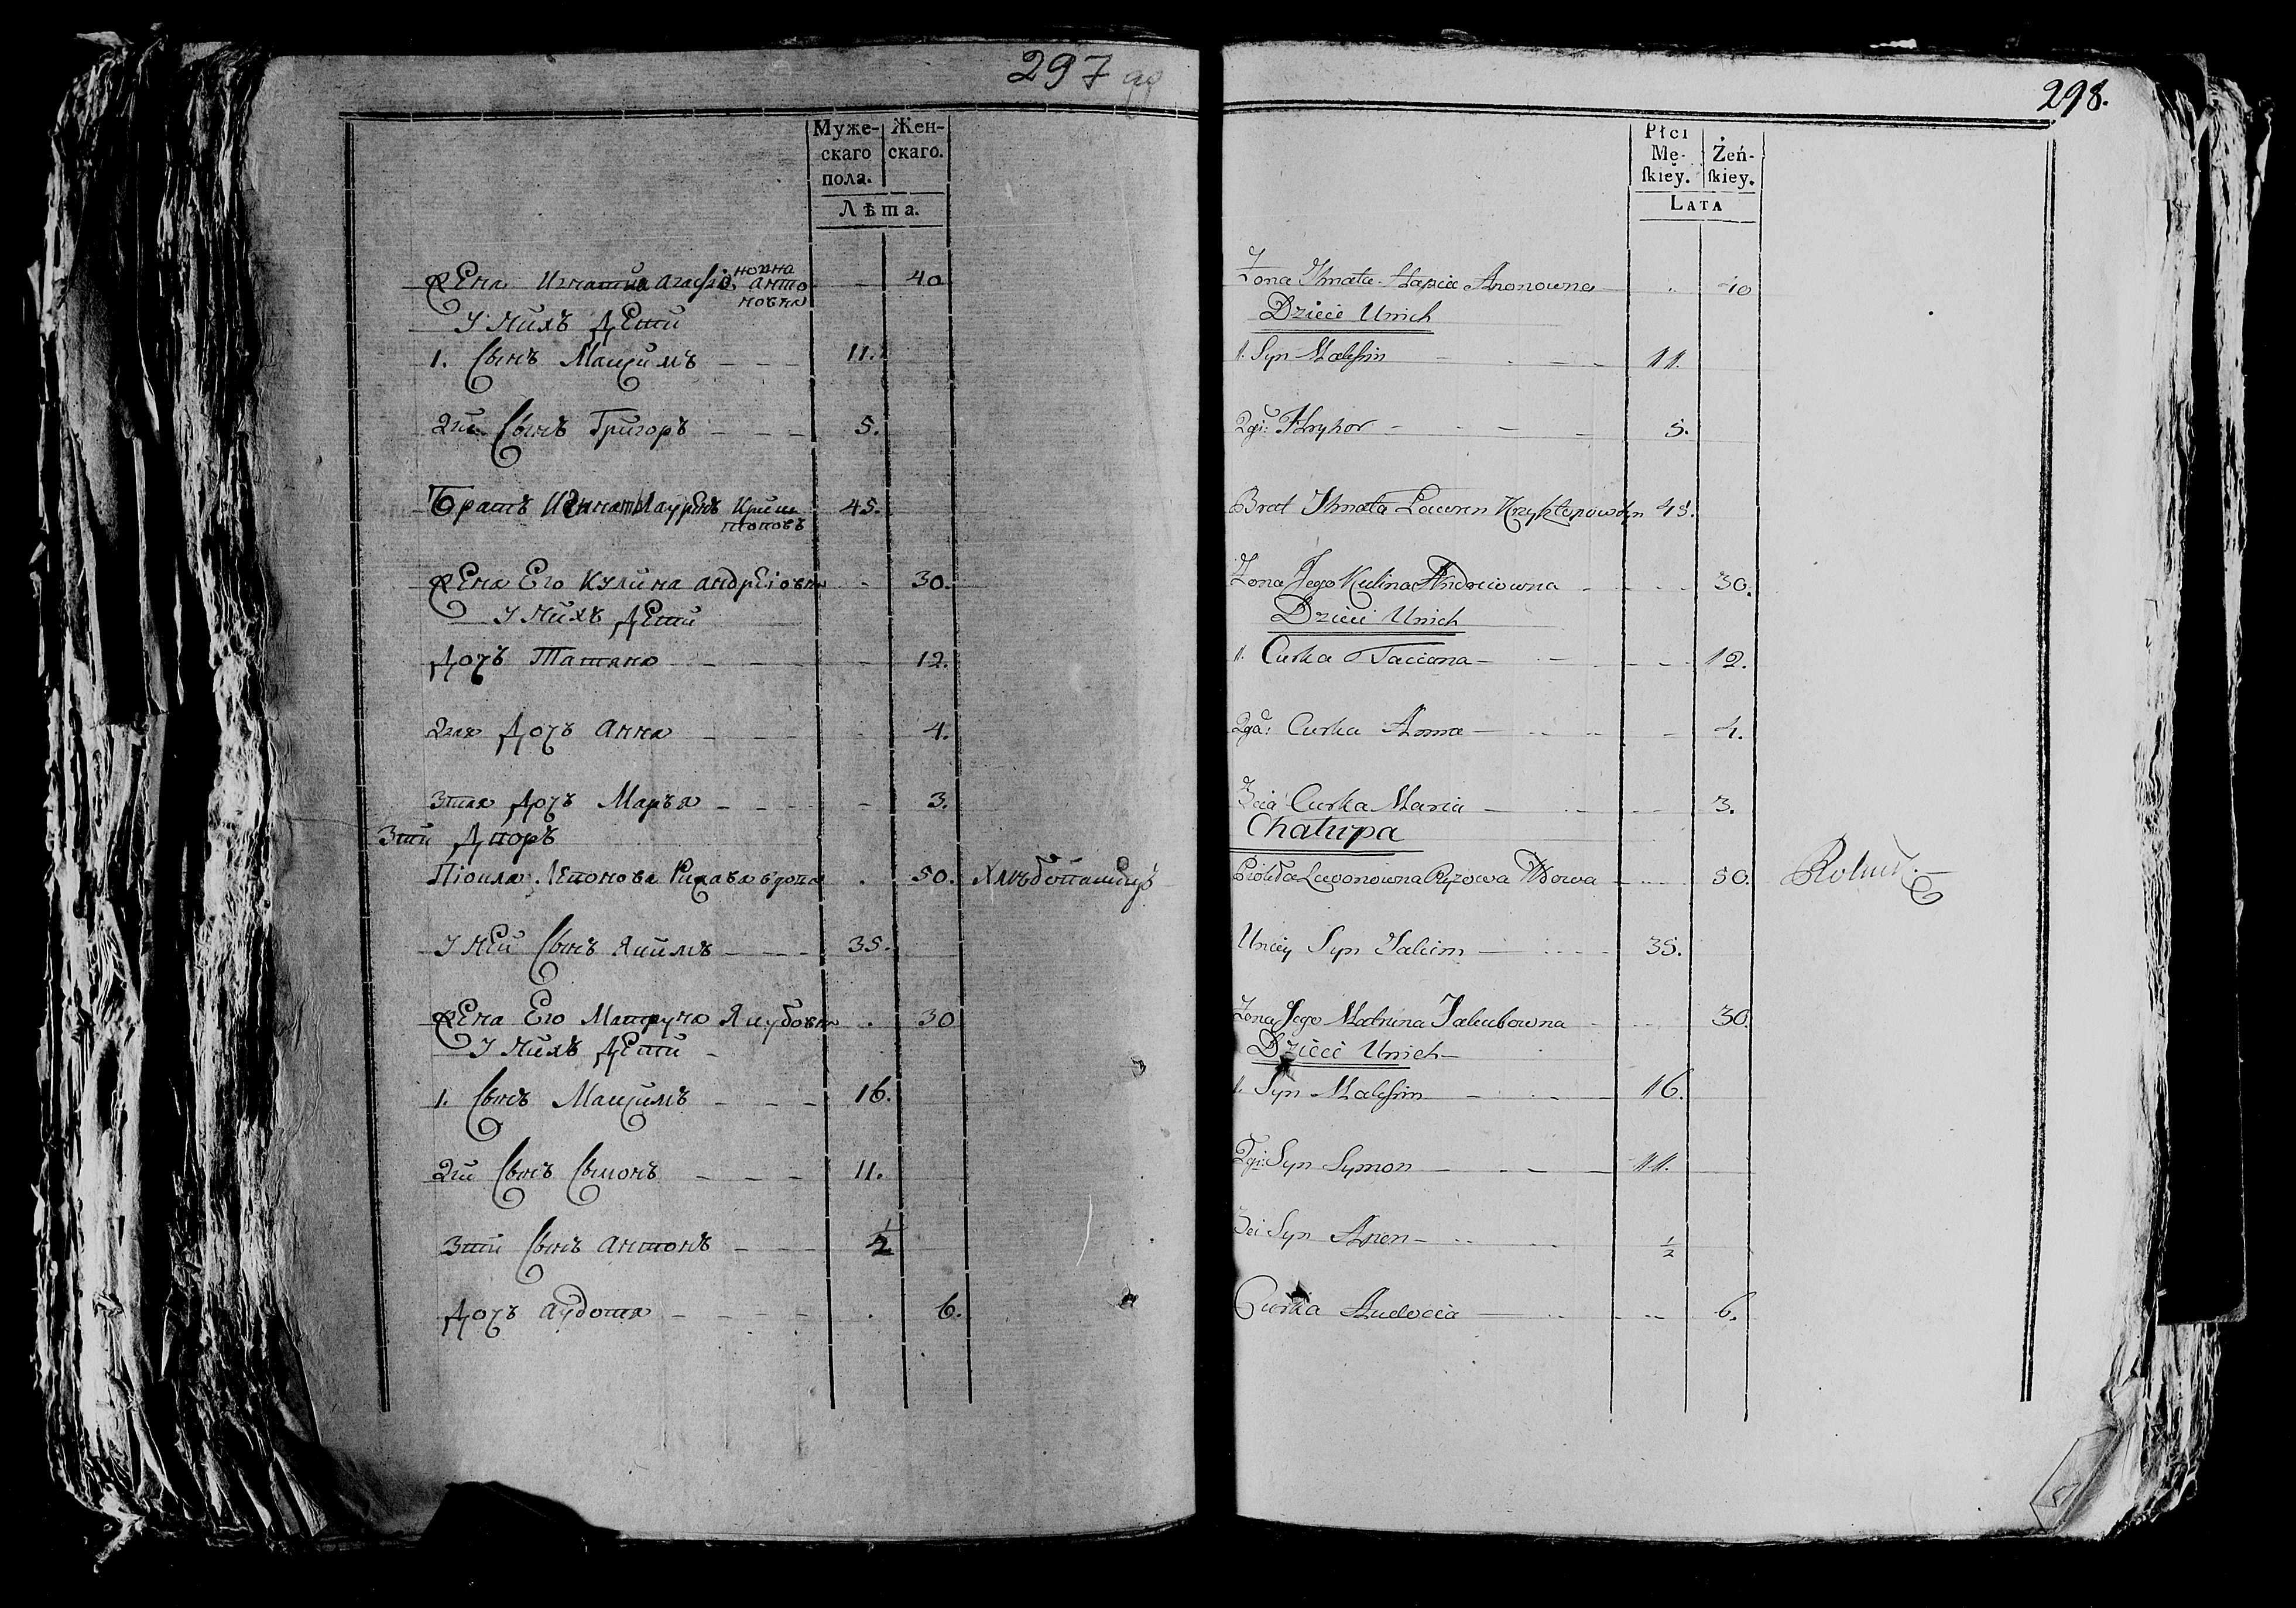 297
Муже-
скаго
пола.
Жен-
скаго.
Лѣта.
Жена Игната Агафiя Анто
новна
40
У Нихъ Дети
1. Сынъ Максимъ 11.
2гй Сынъ Григоръ 5.
Братъ Игната Лаурѣнъ Криш
топовъ
45.
Жена Его Кулина андрЕiовна 30.
У Нихъ Дети
Дочъ Татяна 12.
2гая Дочъ Анна 4.
3тая Дочъ Марья 3.
3тй Дворъ
вдова 50.
У Ней Сынъ Якимъ 35.
Жена Его Матруна Якубовна 30
У Нихъ Дети
1. Сынъ Максимъ 16.
2гй Сынъ Сымонъ 11.
3тй Сынъ Антонъ 1/2
Дочъ Аудотя 6.
298.
Płci
Mę-
ſkiey.
Żeń-
ſkiey.
LATA
Zona Ihnata Hapia 40
Dzieci Unich
1. Syn Maksim 11.
2gi: Hryhor 5.
Brat Ihnata Lawren 45.
Zona Jego Kulina Andreiowna 30.
Dzieci Unich
1. Curka Taciana 12.
2ga: Curka Anna 4.
3cia Curka Maria 3.
Chałupa
Lewonowna Ryzowa Wdowa 50.
Uniey Syn Jakim 35.
Zona Jego Matruna Jakubowna 30.
Dzieci Unich
1. Syn Maksim 16.
2gi: Syn Symon 11.
3ci Syn Anton 1/2
Curka Audocia 6.